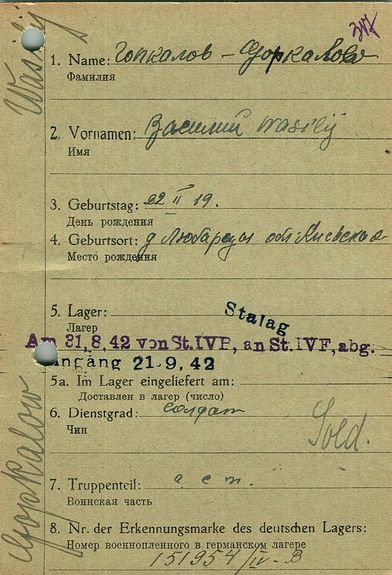 Wasilij
1. Name: Гопкалов - Gorkalow
Фамилия
2. Vornamen: Василий Wasilij
Имя
3. Geburtstag: 22 II 19.
День рождения
4. Geburtsort: д Любарцы обл Киевская
Место рождения
5. Lager: Stalag
Лагер
Am 31.8.42 von St.IVB, an St.IVF, abg.
ngäng 21.9.42
5a. Im Lager eingeliefert am:
Доставлен в лагер (число)
6. Dienstgrad: солдат
Чин
Sold.
7. Truppenteil:
Воинская часть
8. Nr. der Erkennungsmarke des deutschen Lagers:
Номер военнопленного в германском лагере
151954/IV-B
Gorkalow